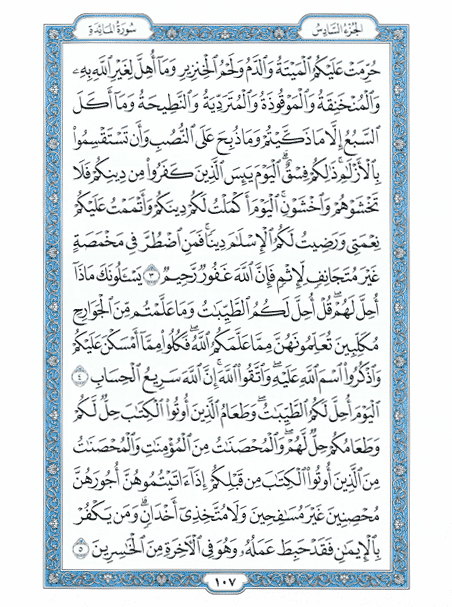 الجزء السادس
سورة المائدة
حُرِّمَتْ عَلَيْكُمُ الْمَيْتَةُ وَالدَّمُ وَلَحْمُ الْخِنزِيرِ وَمَا أُهِلَّ لِغَيْرِ اللَّهِ بِهِۦ
وَالْمُنْخَنِقَةُ وَالْمَوْقُوذَةُ وَالْمُتَرَدِّيَةُ وَالنَّطِيحَةُ وَمَا أَكَلَ
السَّبُعُ إِلَّا مَا ذَكَّيْتُمْ وَمَا ذُبِحَ عَلَى النُّصُبِ وَأَن تَسْتَقْسِمُوا
بِالْأَزْلَٰمِ ذَٰلِكُمْ فِسْقٌ ۗ الْيَوْمَ يَئِسَ الَّذِينَ كَفَرُوا مِن دِينِكُمْ فَلَا
تَخْشَوْهُمْ وَاخْشَوْنِ ۚ الْيَوْمَ أَكْمَلْتُ لَكُمْ دِينَكُمْ وَأَتْمَمْتُ عَلَيْكُمْ
نِعْمَتِي وَرَضِيتُ لَكُمُ الْإِسْلَٰمَ دِينًا ۚ فَمَنِ اضْطُرَّ فِي مَخْمَصَةٍ
غَيْرَ مُتَجَانِفٍ لِّإِثْمٍ فَإِنَّ اللَّهَ غَفُورٌ رَّحِيمٌ ٣ يَسْـَٔلُونَكَ مَاذَا
أُحِلَّ لَهُمْ ۖ قُلْ أُحِلَّ لَكُمُ الطَّيِّبَٰتُ وَمَا عَلَّمْتُم مِّنَ الْجَوَارِحِ
مُكَلِّبِينَ تُعَلِّمُونَهُنَّ مِمَّا عَلَّمَكُمُ اللَّهُ ۖ فَكُلُوا مِمَّا أَمْسَكْنَ عَلَيْكُمْ
وَاذْكُرُوا اسْمَ اللَّهِ عَلَيْهِ ۖ وَاتَّقُوا اللَّهَ ۚ إِنَّ اللَّهَ سَرِيعُ الْحِسَابِ ٤
الْيَوْمَ أُحِلَّ لَكُمُ الطَّيِّبَٰتُ ۖ وَطَعَامُ الَّذِينَ أُوتُوا الْكِتَٰبَ حِلٌّ لَّكُمْ
وَطَعَامُكُمْ حِلٌّ لَّهُمْ ۖ وَالْمُحْصَنَٰتُ مِنَ الْمُؤْمِنَٰتِ وَالْمُحْصَنَٰتُ
مِنَ الَّذِينَ أُوتُوا الْكِتَٰبَ مِن قَبْلِكُمْ إِذَا ءَاتَيْتُمُوهُنَّ أُجُورَهُنَّ
مُحْصِنِينَ غَيْرَ مُسَٰفِحِينَ وَلَا مُتَّخِذِي أَخْدَانٍ ۗ وَمَن يَكْفُرْ
بِالْإِيمَٰنِ فَقَدْ حَبِطَ عَمَلُهُۥ وَهُوَ فِي الْءَاخِرَةِ مِنَ الْخَٰسِرِينَ ٥
١٠٧